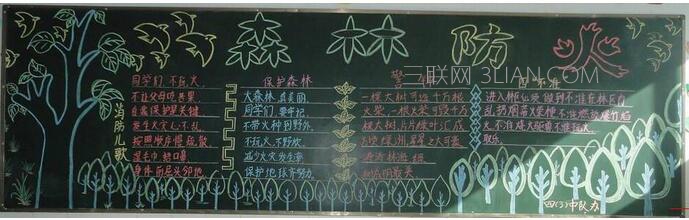 森林防火
三联网 3LIAN.COM
消防儿歌
同学们,不玩火,
不让父母吃苦果,
自我保护是关键,
发生火灾人不乱,
按照顺序慢疏散,
湿毛巾,蒙口鼻,
身体
保护森林
大森林,真美丽,
同学们,要牢记,
不带火种到野外,
不玩火,不野炊,
减少火灾为生命
保护地球齐努力。
警
一棵大树可造千万根
火柴,一根火柴可毁千万
棵大树,片片枝叶汇成
进入林区必须做到不准在林区内
乱扔烟蒂火柴梗不准燃放爆竹焰
火不准烧火驱兽不准玩火
取乐。
四(3)中队办